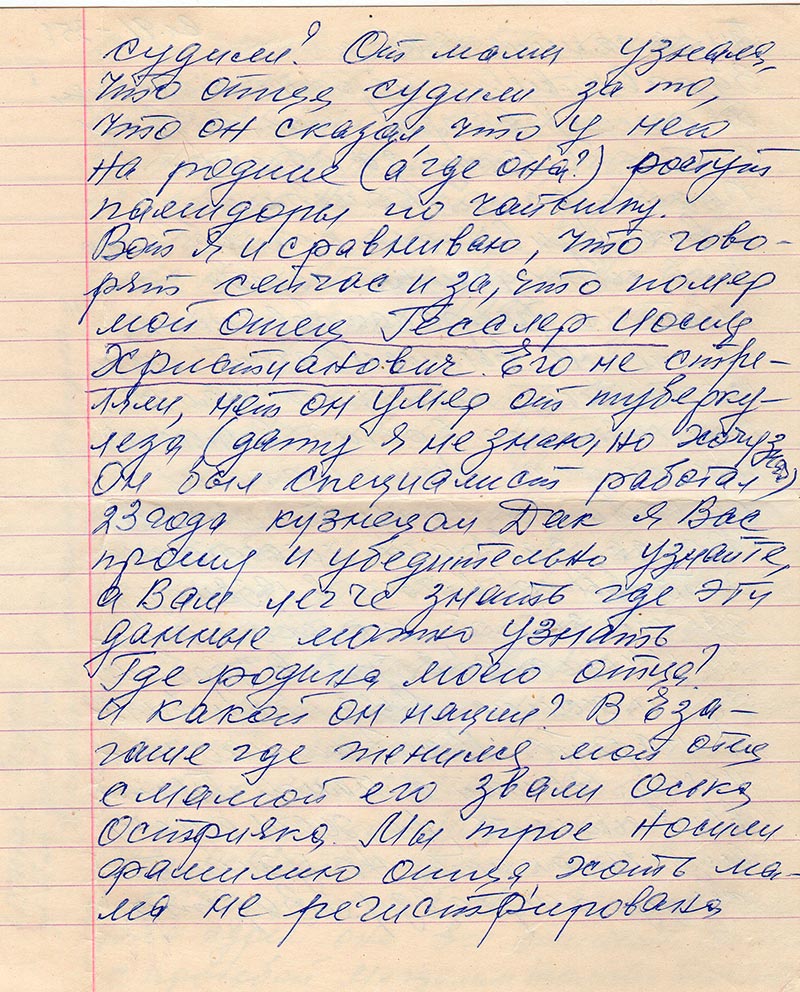 судили? От мамы узнала,
что отца судили за то,
что он сказал что у него
на родине (а где она?) ростут
памидоры по чайнику.
Вот я и сравниваю, что гово-
рят сейчас и за, что помер
мой отец Гесслер Иосиф
Христианович. Его не стре-
ляли, нет он умер от туберку-
леза (дату я не знаю, но хочу знать)
Он был специалист работал
23 года кузнецом Дак я Вас
прошу и убедительно узнайте,
а Вам легче знать где эти
данные можно узнать
Где родина моего отца?
и какой он нации? В Еза-
гаше где женился мой отец
с мамой его звали Оська
Острияка. Мы трое носили
фамилию отца хоть ма-
ма не регистрирована